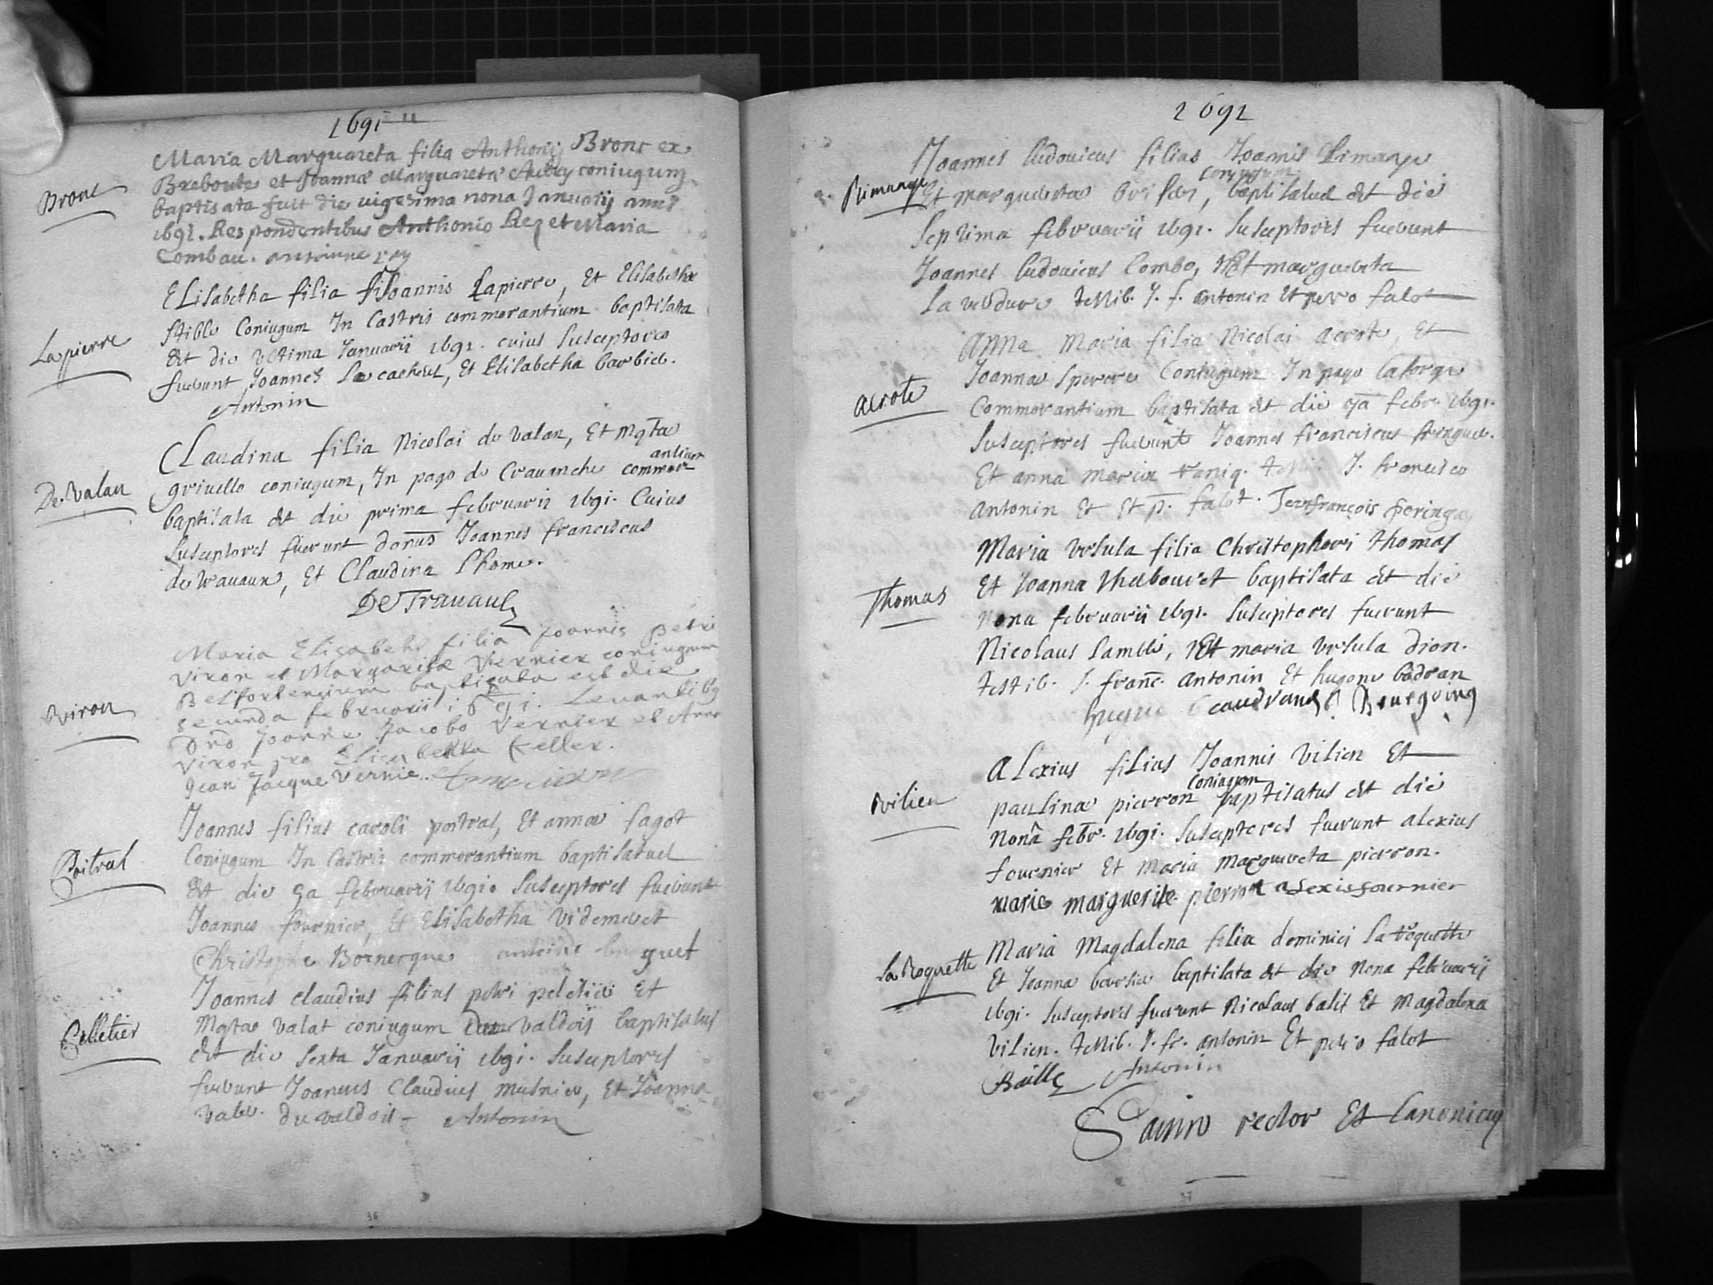 1691
Bronc
Maria Marguareta filia Anthonij Bronc ex
Breboute et Joannæ Marguaretæ Aubry coniugum
baptisata fuit die uigesima nona Januarij anni
1691. Respondentibus Anthonio Rey et Maria
Combau. Antoinne rey
Lapierre
Elisabetha filia Joannis Lapierre, Et Elisabethæ
stible Coniugum In Castris commorantium baptisata
Est die Vltima Januarii 1691. cuius Susceptores
fuerunt Joannes Le cacheux, Et Elisabetha barbier.
Antonin
De Valan
Claudina filia Nicolai de valan, Et mgtæ
griuelle coniugum, In pago de Crauanche commorantium
baptisata Est die prima februarii 1691. Cuius
Susceptores fuerunt Joannes franciscus
de trauaux, Et Claudina Lhome.
De Trauaulx
Viron
Maria Elisabeht filia Joannis Petri
Viron et Margaritæ Vernier coniugum
Belfortensium baptisata est die
secunda februarii 1691. Leuantibus
Dno Joanne Jacobo Vernier et Anna
Viron pro Elisabetha Keller.
Jean Jacque Vernie
Poitral
Joannes filius caroli poitral, Et annæ sagot
Coniugum In Castris commorantium baptisatus
Est die 5a februarij 1691. Susceptores fuerunt
Joannes fournier, Et Elisabetha Videmeret
Christophe Bornerque antoine huguet
Pelletier
Joannes claudius filius petri peletier Et
Mgtae valat coniugum valdois baptisatus
Est die Sexta Januarij 1691. Susceptores
fuerunt Joannes Claudius musnier, Et Joanna
du valdois - Antonin
1691
Rimange
Joannes ludouicus filius Joannis Rimange
Et marguareta coniugum, baptisatus Est die
Septima februarii 1691. Susceptores fuerunt
Joannes ludouicus Combe, Et margareta
La verdure testib. J. f. antonin Et petro falot
acrote
Anna Maria filia Nicolai acrote, Et
Joannæ sperere Coniugum In pago laforge
Commorantium baptisata Est die 7a febr. 1691.
Susceptores fuerunt Joannes franciscus feringue.
Et anna maria taniq. testi. J. francisco
antonin Et P. falot. Jean françois feringue
Thomas
Maria Vrsula filia Christophori thomas
Et Joanna thebouret baptisata Est die
Nona februarii 1691. Susceptores fuerunt
Nicolaus lambl, Et maria Vrsula dion.
testib. J. franc. antonin Et hugone
hugue Bourgoing
Vilien
Alexius filius Joannis Vilien Et
paulinæ pierron coniugum baptisatus Est die
Nona febr. 1691. Susceptores fuerunt alexius
fournier Et Maria margureta pierron.
marie marguerite pierron alexis fournier
La Roquette
Maria Magdalena filia dominici la roquette
Et Joanna baptisata Est die Nona februarij
1691. Susceptores fuerunt Nicolaus balis Et Magdalena
Vilien. testib. J. fr. antonin Et petro falot
Baille Antonin
rector Et Canonicus
36
37